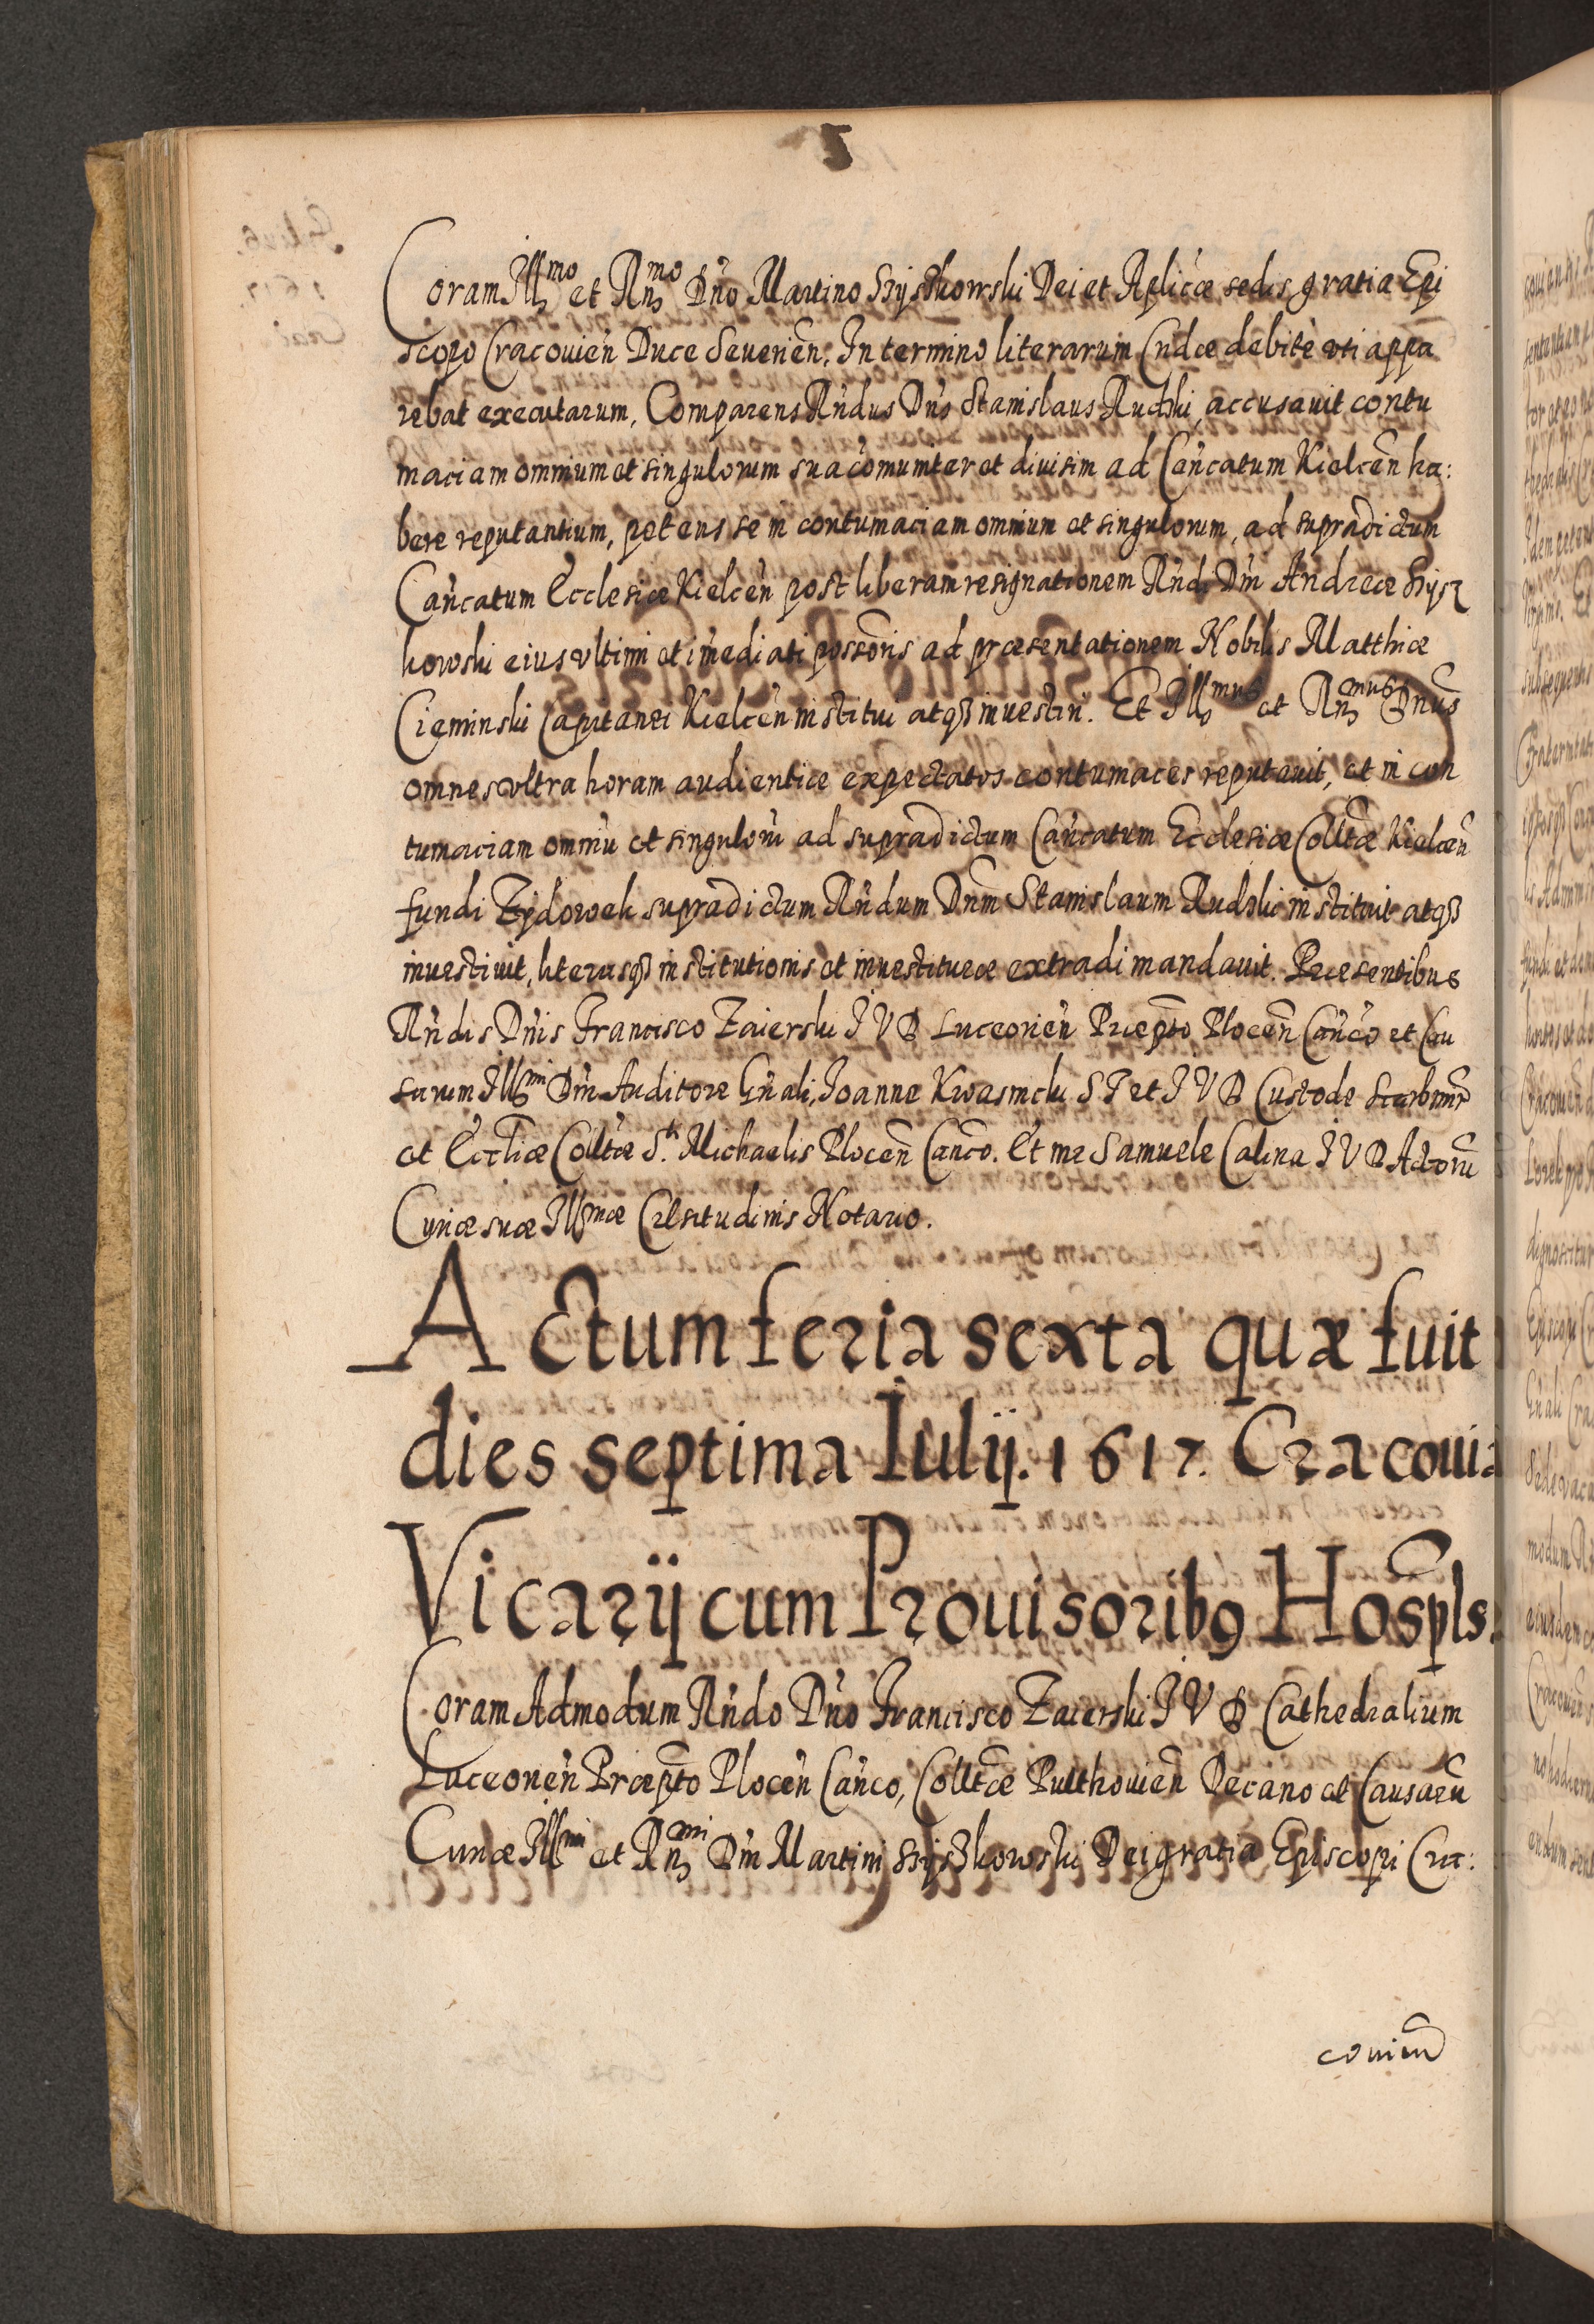 Coram Illmo et Rnmo Dno Martino Szyszkowski Dei et Aplicæ sedis gratia Epi
scopo Cracouien Duce Seuerien. In termino literarum Cndæ debitè uti appa
rebat executarum, Comparens Rndus Dns Stanislaus Rudzki, accusauit contu
maciam omnium et singulorum sua comuniter et diuisim ad Cancatum Kielcen ha:
bere reputantium, petens se in contumaciam omnium et singulorum, ad supradictum
Cancatum Ecclesiæ Kielcen post liberam resignationem Rndi Dni Andreæ Szysz
kowski eius vltimi et imediati possoris ad præsentationem Nobilis Matthiæ
Cieminski Capitanei Kielcen institui atqz inuestiri. Et Illmus et Rnmus Dnus
omnes vltra horam audientiæ expectatos contumaces reputauit, et in con
tumaciam omniu et singuloru ad supradictum Cancatum Ecclesiæ Colltæ Kielcen
fundi Zydowek supradictum Rndum Dnm Stanislaum Rudzki instituit atqz
inuestiuit, literasqz institutionis et inuestituræ extradi mandauit. Præsentibus
Rndis Dnis Francisco Zaierski I V D Luceorien Præpto Plocen Canco et Cau
sarum Illmi Dni Auditore Gnali, Joanne Kwasnicki S T et I V D Custode Scarbimr
et Eccliæ Colltæ S. Michaelis Plocen Canco. Et me Samuele Calina I V D Actoru
Curiæ suæ Illmæ Celsitudinis Notario.
Actum feria sexta quæ fuit
dies septima Iulij. 1617. Cracouia
Vicarij cum Prouisorib9 Hospls:
Coram Admodum Rndo Dno Francisco Zaierski I V D Cathedralium
Luceorien Præpto Plocen Canco, Colltæ Pulthouien Decano et Causaru
Curiæ Illmi et Rnmi Dni Martini Szyszkowski Dei gratia Episcopi Cra:
couien